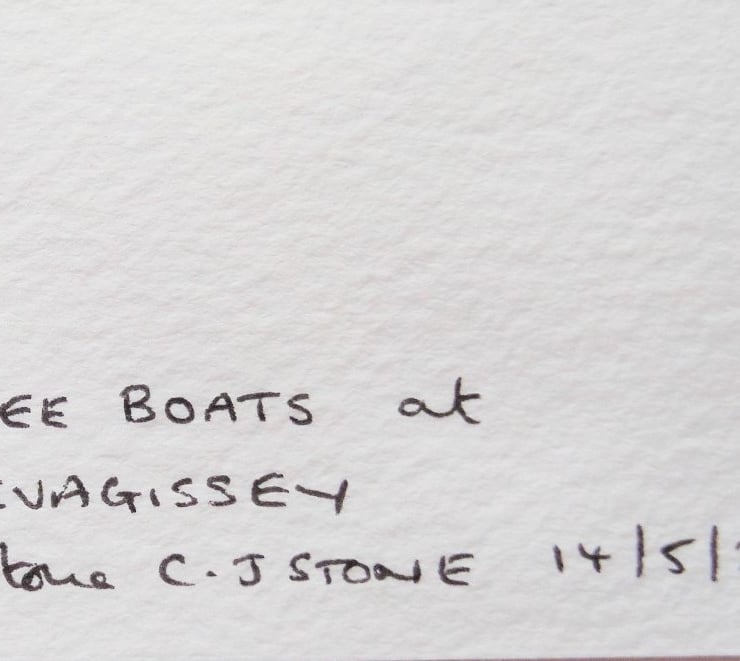 EE BOATS at
EVAGISSEY
tone C.J STONE 14/5/